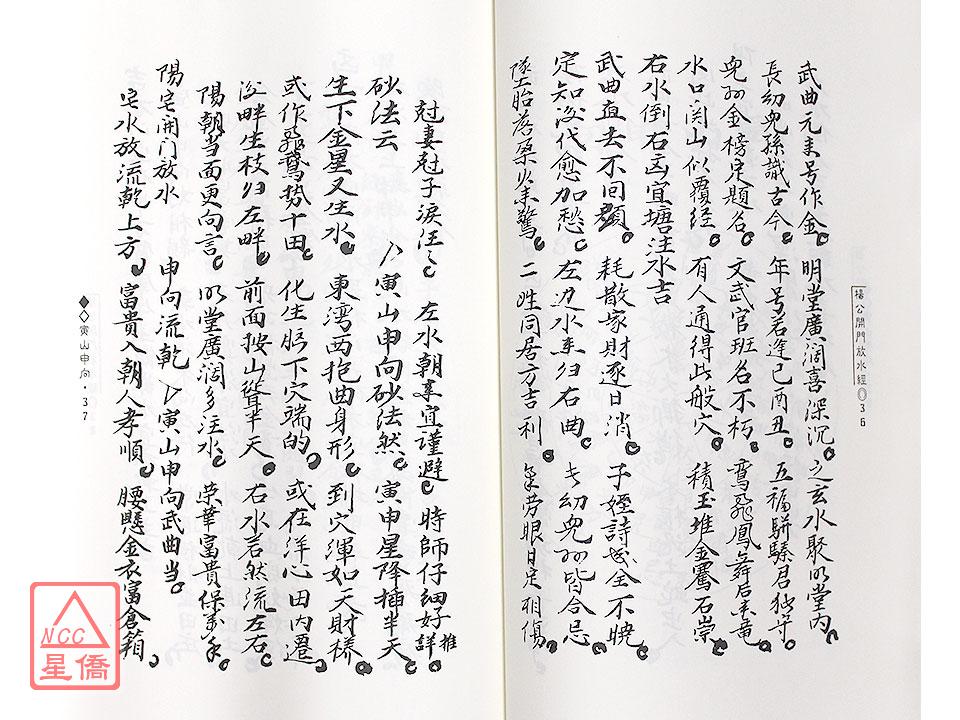 楊公開門放水經 36
武曲元來号作金 明堂廣濶喜深沉 之玄水聚明堂內
長幼兒孫識古今 年号若逢巳酉丑 五福駢臻君独守
兒孙金榜定題名 文武官班名不朽 鸞飛鳳舞后来竜
水口関山似覆 有人通得此般穴 積玉堆金鬭石崇
右水倒右 宜塘注水吉
武曲直去不回顏 耗散家财逐日消 子姪詩 全不曉
定知後代愈加愁 左边水来归右曲 長幼兒孙皆合忌
墜胎落 火来驚 二姓同居方吉利 氣劳眼目足相傷
尅妻尅子淚汪々 左水朝来宜謹避 時師仔細好推詳
砂法云 寅山申向砂法然 寅申星降插半天
生下金星又生水 東湾西抱曲身形 到穴渾如天财樣
或作飛鵞势十田 化生腦下穴端的 或在洋心田內遷
後畔生枝归左畔 前面按山聳半天 右水若然流左右
陽朝当面更向言 明堂廣濶多注水 荣華富貴保萬年
陽宅開门放水 申向流乾 寅山申向武曲当
宅水放流乾上方 富貴入朝人孝順 腰懸金衣富倉箱
寅山申向・37
NCC
星僑